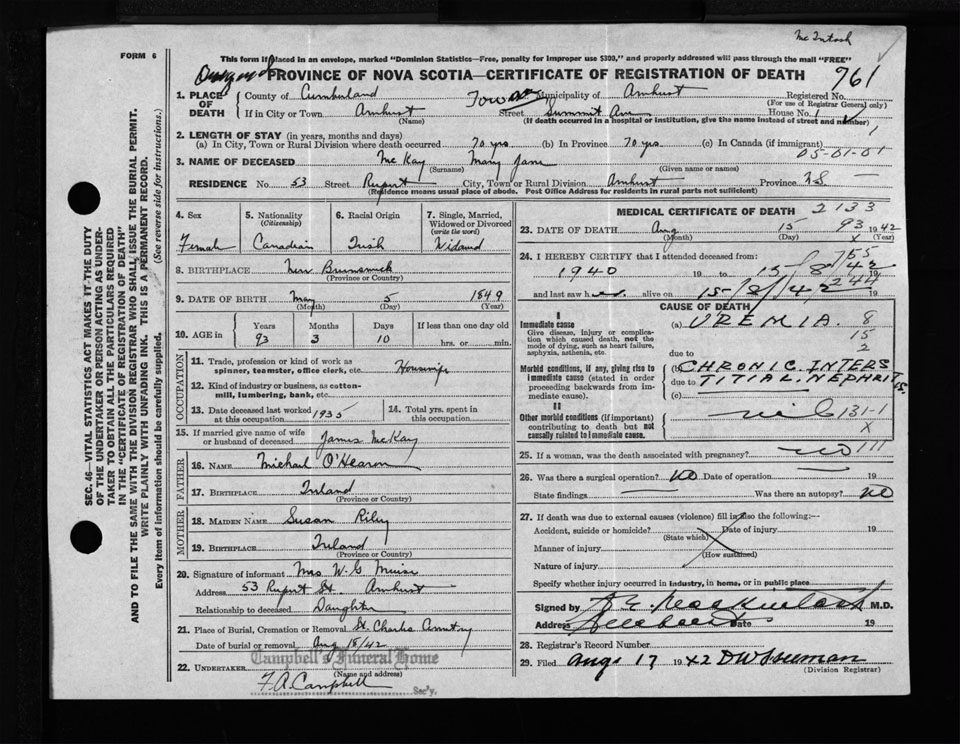 Mc Intosh
FORM 6
This form if placed in an envelope, marked "Dominion Statistics—Free, penalty for improper use $300," and properly addressed will pass through the mail "FREE"
PROVINCE OF NOVA SCOTIA—CERTIFICATE OF REGISTRATION OF DEATH
761
1. PLACE OF DEATH
County of Cumberland Town Municipality of Amherst Registered No.
(For use of Registrar General only)
If in City or Town Amherst Street Summit Ave House No. 1
(Name) (If death occurred in a hospital or institution, give the name instead of street and number)
2. LENGTH OF STAY (in years, months and days)
(a) In City, Town or Rural Division where death occurred 70 yrs (b) In Province 70 yrs (c) In Canada (if immigrant)
05-01-01
3. NAME OF DECEASED McKay Mary Jane
(Surname) (Given name or names)
RESIDENCE No. 53 Street Rupert City, Town or Rural Division Amherst Province N.S.
(Residence means usual place of abode. Post Office Address for residents in rural parts not sufficient)
4. Sex
Female
5. Nationality
(Citizenship)
Canadian
6. Racial Origin
Irish
7. Single, Married, Widowed or Divorced
(write the word)
Widowed
8. BIRTHPLACE New Brunswick
(Province or Country)
9. DATE OF BIRTH May 5 1849
(Month) (Day) (Year)
10. AGE in
Years Months Days If less than one day old
93 3 10 hrs. or min.
OCCUPATION
11. Trade, profession or kind of work as spinner, teamster, office clerk, etc. Housewife
12. Kind of industry or business, as cotton-mill, lumbering, bank, etc.
13. Date deceased last worked at this occupation 1935
14. Total yrs. spent in this occupation
15. If married give name of wife or husband of deceased James McKay
FATHER
16. NAME Michael O'Hearon
17. BIRTHPLACE Ireland
(Province or Country)
MOTHER
18. MAIDEN NAME Susan Riley
19. BIRTHPLACE Ireland
(Province or Country)
20. Signature of informant Mrs W. G.
Address 53 Rupert St. Amherst
Relationship to deceased Daughter
21. Place of Burial, Cremation or Removal St. Charles
Date of burial or removal Aug 18/42
22. UNDERTAKER Campbell's Funeral Home
(Name and address)
F. A. Campbell
Sec'y.
MEDICAL CERTIFICATE OF DEATH
2133
23. DATE OF DEATH Aug 15 1942
93
(Month) (Day) (Year)
24. I HEREBY CERTIFY that I attended deceased from:
1940 19 to 15/8/42 19
and last saw h er alive on 15/8/42 19
244
CAUSE OF DEATH
I
Immediate cause
Give disease, injury or complication which caused death, not the mode of dying, such as heart failure, asphyxia, asthenia, etc.
(a) UREMIA.
8
15
2
due to
Morbid conditions, if any, giving rise to immediate cause (stated in order proceeding backwards from immediate cause).
(b) CHRONIC INTERS
due to TITIAL NEPHRITIS.
(c)
II
Other morbid conditions (if important) contributing to death but not causally related to immediate cause.
nil
131-1
X
25. If a woman, was the death associated with pregnancy? no
111
26. Was there a surgical operation? NO Date of operation 19
State findings Was there an autopsy? NO
27. If death was due to external causes (violence) fill in also the following:—
Accident, suicide or homicide? Date of injury 19
(State which)
Manner of injury
(How sustained)
Nature of injury
Specify whether injury occurred in industry, in home, or in public place
Signed by M.D.
Address Date 19
28. Registrar's Record Number
29. Filed Aug 17 1942
(Division Registrar)
SEC. 46—VITAL STATISTICS ACT MAKES IT THE DUTY OF THE UNDERTAKER OR PERSON ACTING AS UNDERTAKER TO OBTAIN ALL THE PARTICULARS REQUIRED IN THE "CERTIFICATE OF REGISTRATION OF DEATH"
AND TO FILE THE SAME WITH THE DIVISION REGISTRAR WHO SHALL ISSUE THE BURIAL PERMIT.
WRITE PLAINLY WITH UNFADING INK. THIS IS A PERMANENT RECORD.
Every item of information should be carefully supplied. (See reverse side for instructions.)